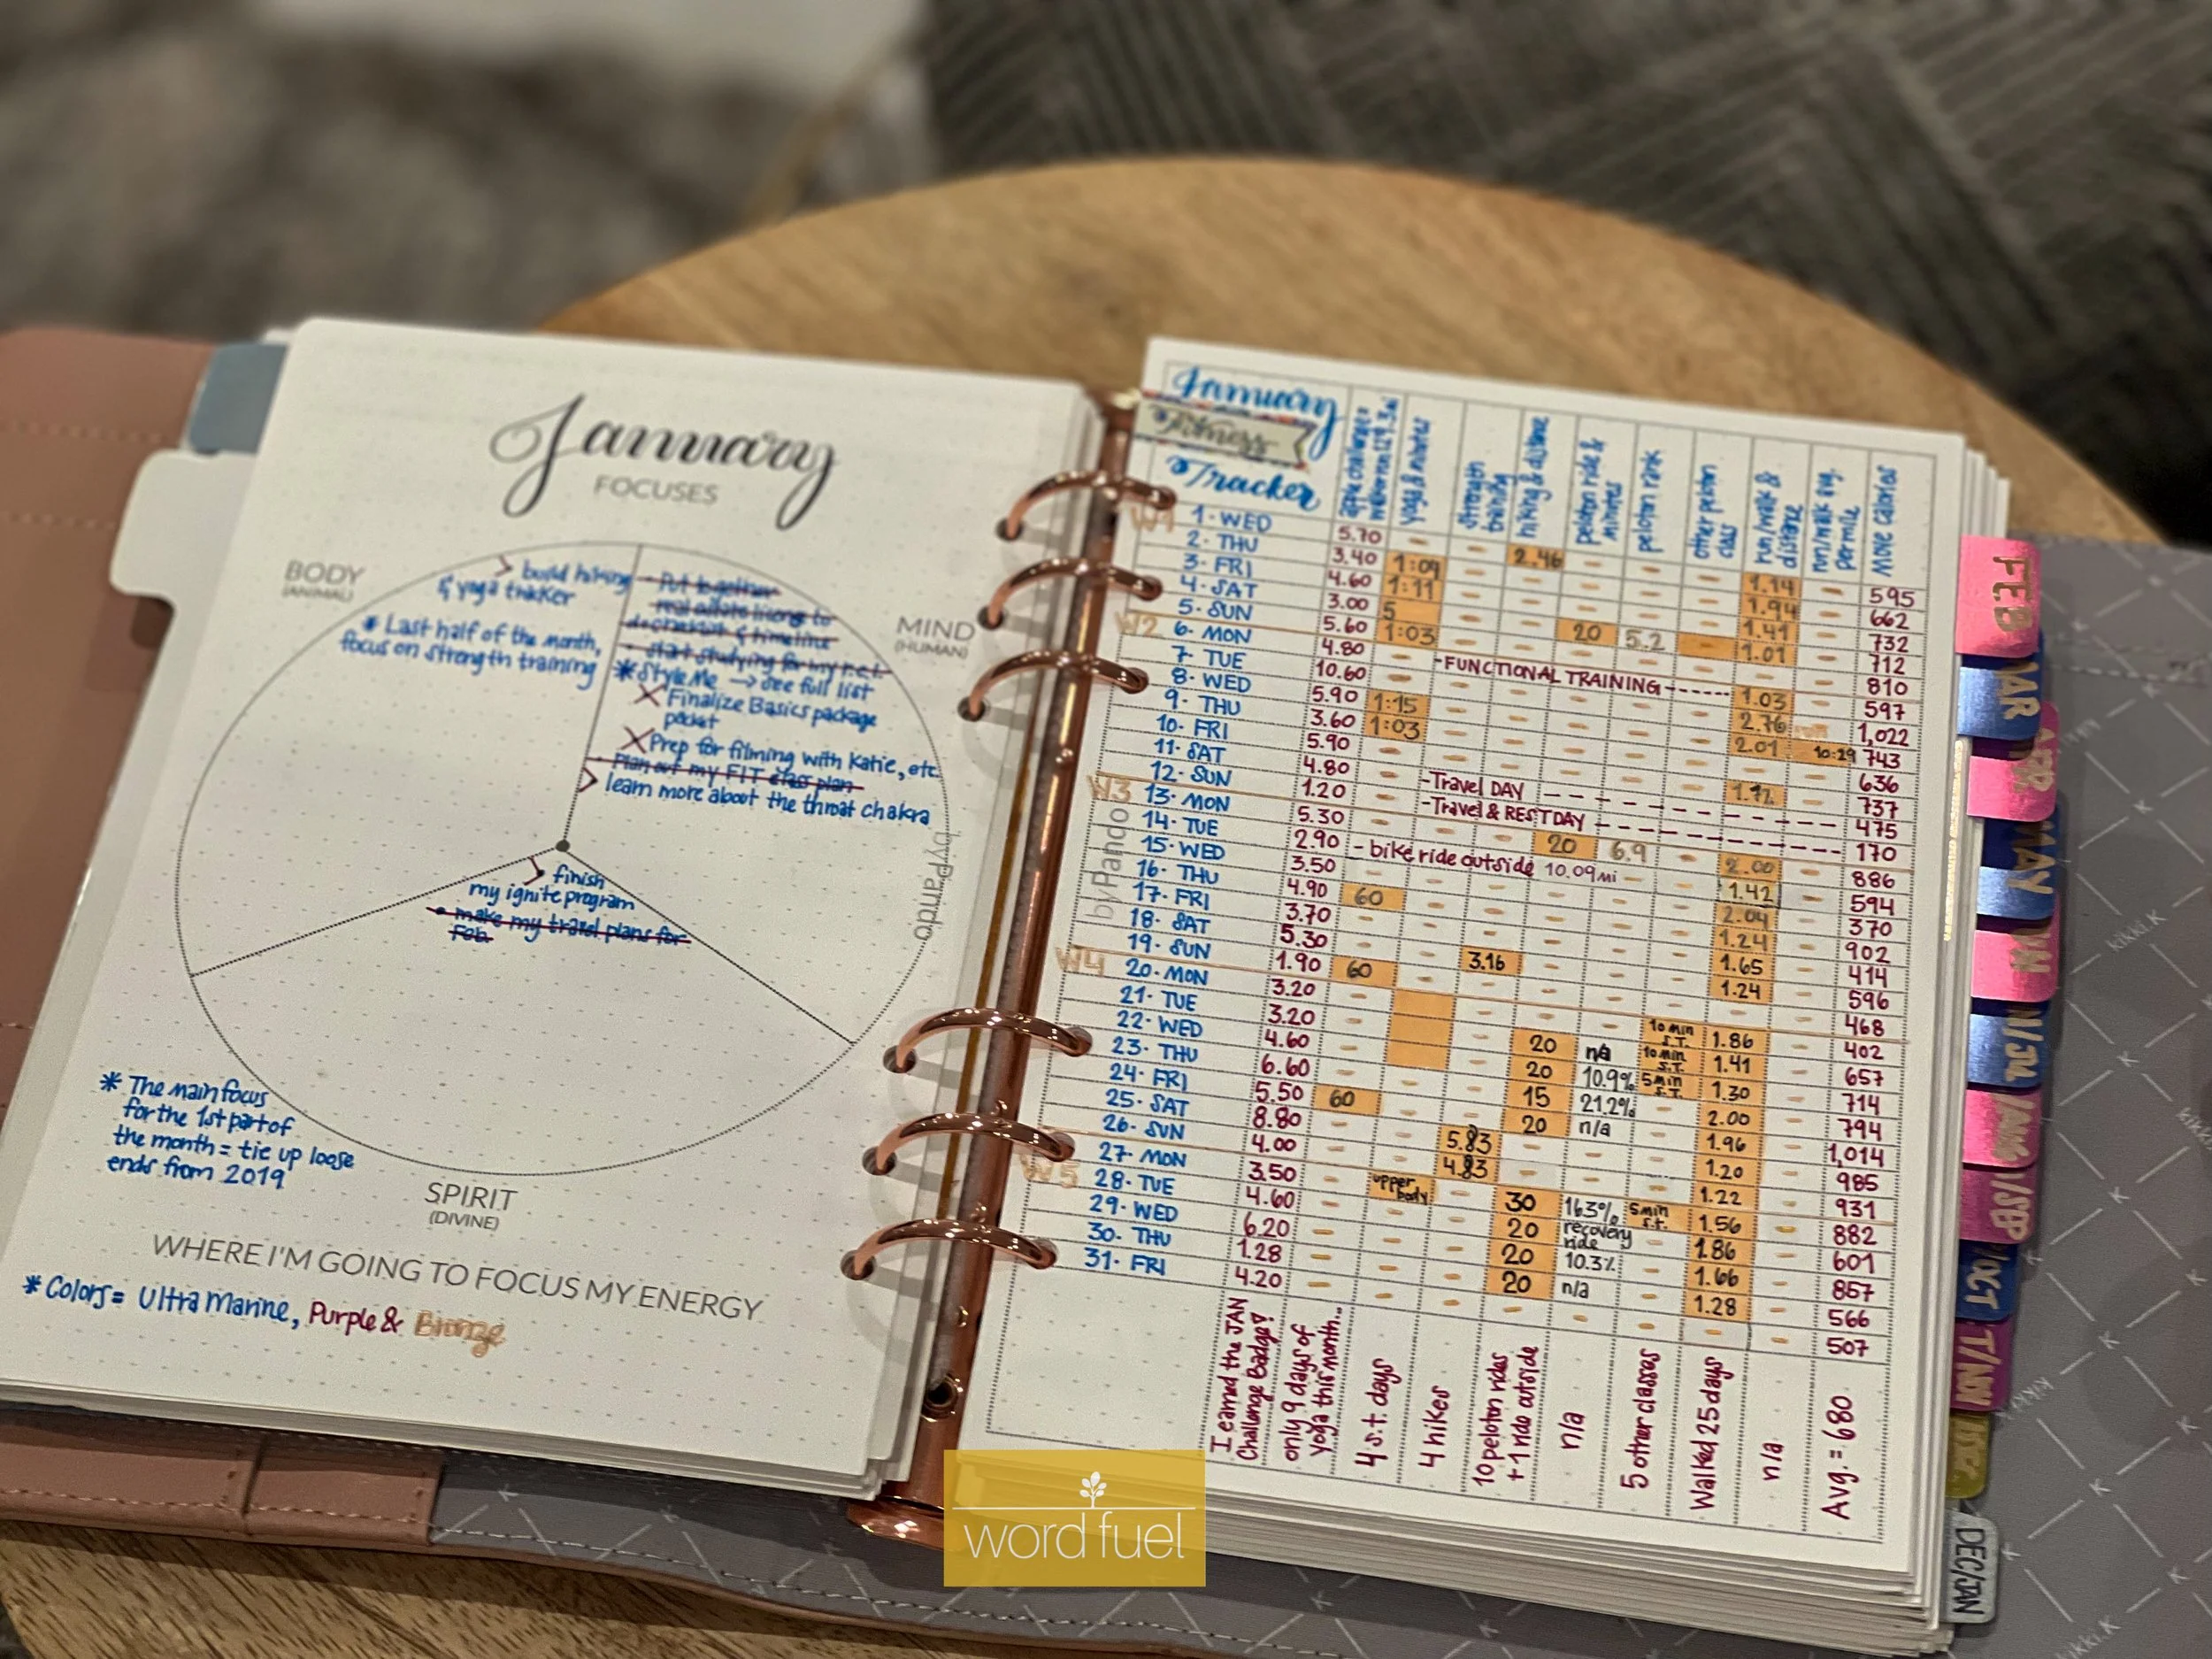 January
FOCUSES
BODY
(ANIMAL)
> build hiking
& yoga tracker
* Last half of the month,
focus on strength training
MIND
(HUMAN)
- Put together
real estate license to
do checklist & timeline
- start studying for my r.e.l.
* Style Me → see full list
X Finalize Basics package
packet
X Prep for filming with Katie, etc.
- Plan out my FIT class plan
> learn more about the throat chakra
> finish
my ignite program
• make my travel plans for
Feb.
byPando
* The main focus
for the 1st part of
the month = tie up loose
ends from 2019
SPIRIT
(DIVINE)
WHERE I'M GOING TO FOCUS MY ENERGY
* Colors = Ultra Marine, Purple & Bronze
January
Fitness
Tracker
yoga & minutes
strength
training
hiking & distance
peloton ride &
minutes
peloton rank
other peloton
class
run/walk &
distance
run/walk avg.
per mile
Move calories
W1
1. WED
2. THU
3. FRI
4. SAT
5. SUN
W2
6. MON
7. TUE
8. WED
9. THU
10. FRI
11. SAT
12. SUN
W3
13. MON
14. TUE
15. WED
16. THU
17. FRI
18. SAT
19. SUN
W4
20. MON
21. TUE
22. WED
23. THU
24. FRI
25. SAT
26. SUN
W5
27. MON
28. TUE
29. WED
30. THU
31. FRI
byPando
5.70
3.40
4.60
3.00
5.60
4.80
10.60
5.90
3.60
5.90
4.80
1.20
5.30
2.90
3.50
4.90
3.70
5.30
1.90
3.20
3.20
4.60
6.60
5.50
8.80
4.00
3.50
4.60
6.20
1.28
4.20
1:09
1:11
5
1:03
1:15
1:03
60
60
60
2.46
20
5.2
-FUNCTIONAL TRAINING------
-Travel DAY
-Travel & REST DAY
20
6.9
- bike ride outside 10.09mi -
3.16
5.83
4.83
upper
body
20
20
15
20
30
20
20
20
n/a
10.9%
21.2%
n/a
163%
recovery
ride
10.3%
n/a
10 min
S.T.
10 min
S.T.
5 min
S.T.
5 min
s.t.
1.14
1.94
1.41
1.01
1.03
2.76
2.01
10:29
2.00
1.42
2.04
1.24
1.65
1.24
1.86
1.41
1.30
2.00
1.96
1.20
1.22
1.56
1.86
1.66
1.28
595
662
732
712
810
597
1,022
743
636
737
475
170
886
594
370
902
414
596
468
402
657
714
794
1,014
985
931
882
601
857
566
507
I earned the JAN
Challenge Badge!
only 9 days of
yoga this month...
4 s.t. days
4 hikes
10 peloton rides
+ 1 ride outside
n/a
5 other classes
Walked 25 days
n/a
Avg. = 680
FEB
MAR
APR
MAY
JUN
N/JL
/AUG
/SP
/OCT
T/NOV
DEC/JAN
kikki.K
kikki.K
kikki.K
word fuel